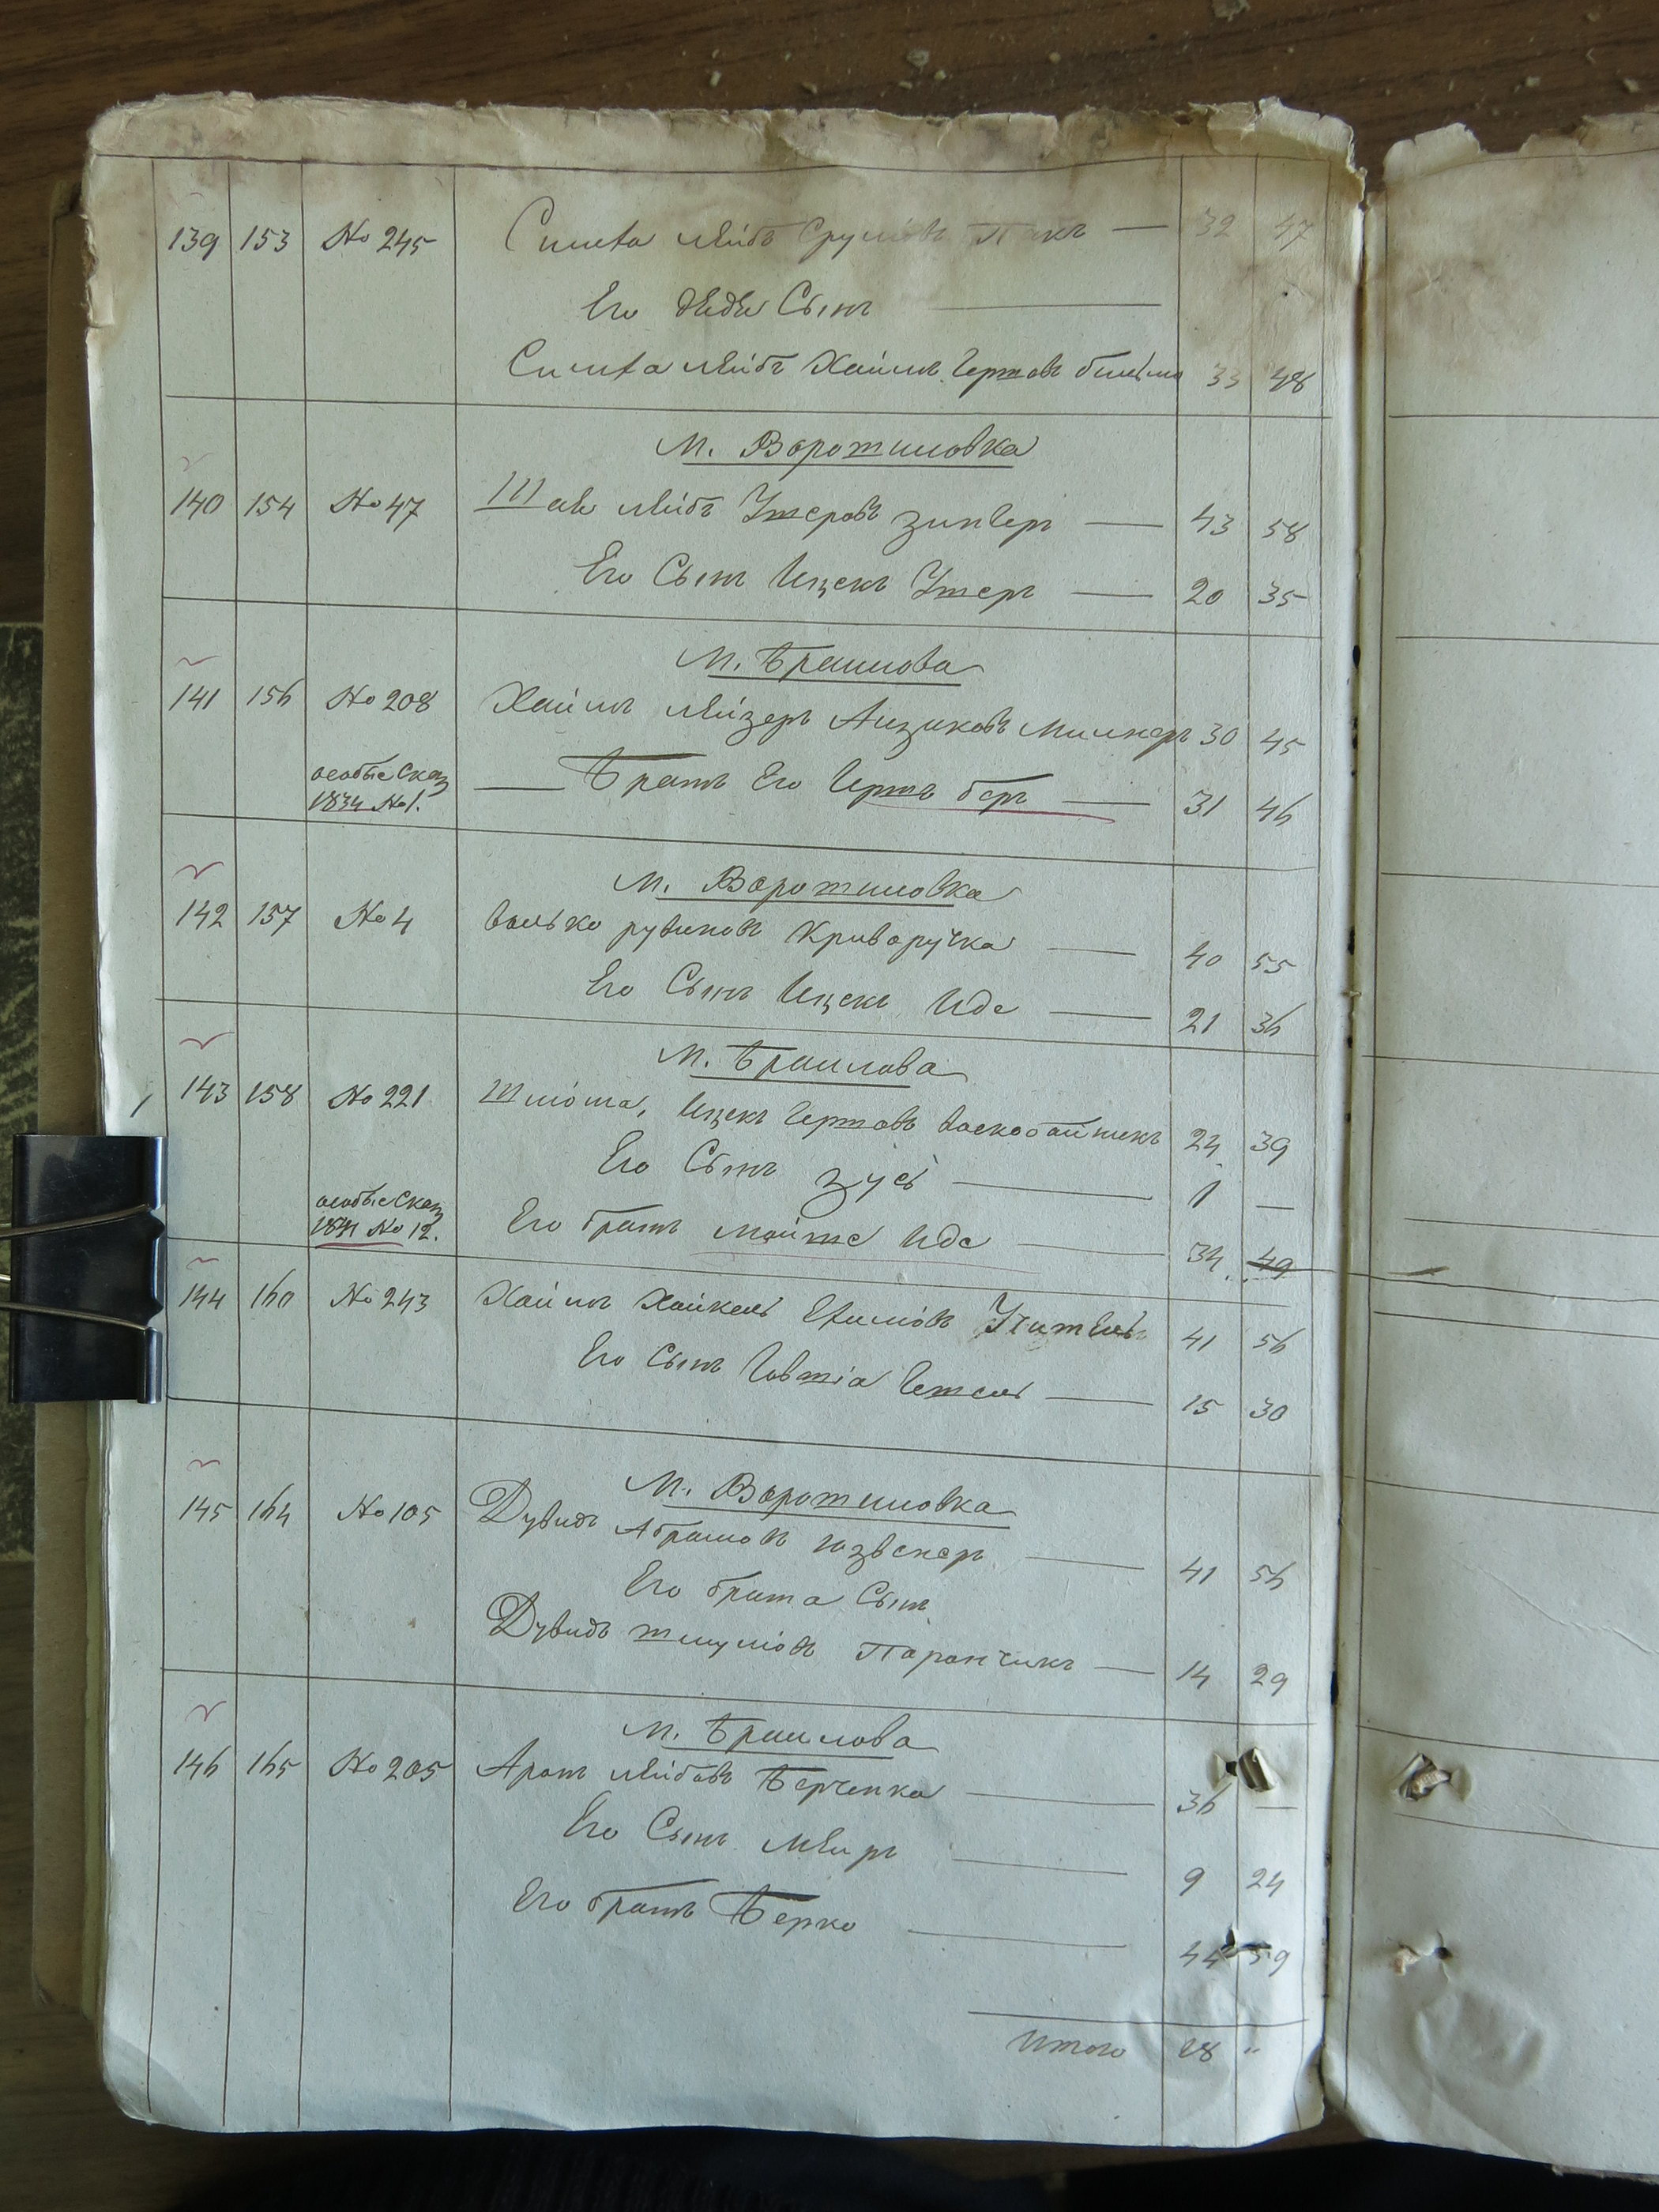 139 153 № 245 Симха Лейбъ Сруліовъ Пакъ — 32 47
Его дяди Сынъ
Симха Лейбъ Хаимъ Гершовъ 33 48
М. Ворошиловка
140 154 № 47 Шая Лейбъ Ушеровъ Зингеръ — 43 58
Его Сынъ Ицекъ Ушеръ — 20 35
М. Браилова
141 156 № 208 Хаимъ Лейзеръ Айзиковъ Мильнеръ 30 45
особые Сказ — Братъ Его Гершъ беръ — 31 46
1834 № 1.
М. Ворошиловка
142 157 № 4 Волько рувиновъ Криворучка — 40 55
Его Сынъ Ицекъ Иде — 21 36
М. Браилова
143 158 № 221 Шліома, Ицекъ Гершовъ Воскобойникъ 24 39
Его Сынъ Зусь — 1 —
особые Сказ Его братъ Мойше Иде 34 49
1834 № 12.
144 160 № 243 Хаимъ Хайкель Ехимовъ Учитель 41 56
Его Сынъ Говшіа Гешель — 15 30
М. Ворошиловка
145 164 № 105 Дувидъ Абрамовъ — 41 56
Его брата Сынъ
Дувидъ Шмуліовъ Паранчикъ — 14 29
М. Браилова
146 165 № 205 Аронъ Лейбовъ Берченка — 36 —
Его Сынъ Меиръ — 9 24
Его братъ Берко — 44 59
Итого 28 "